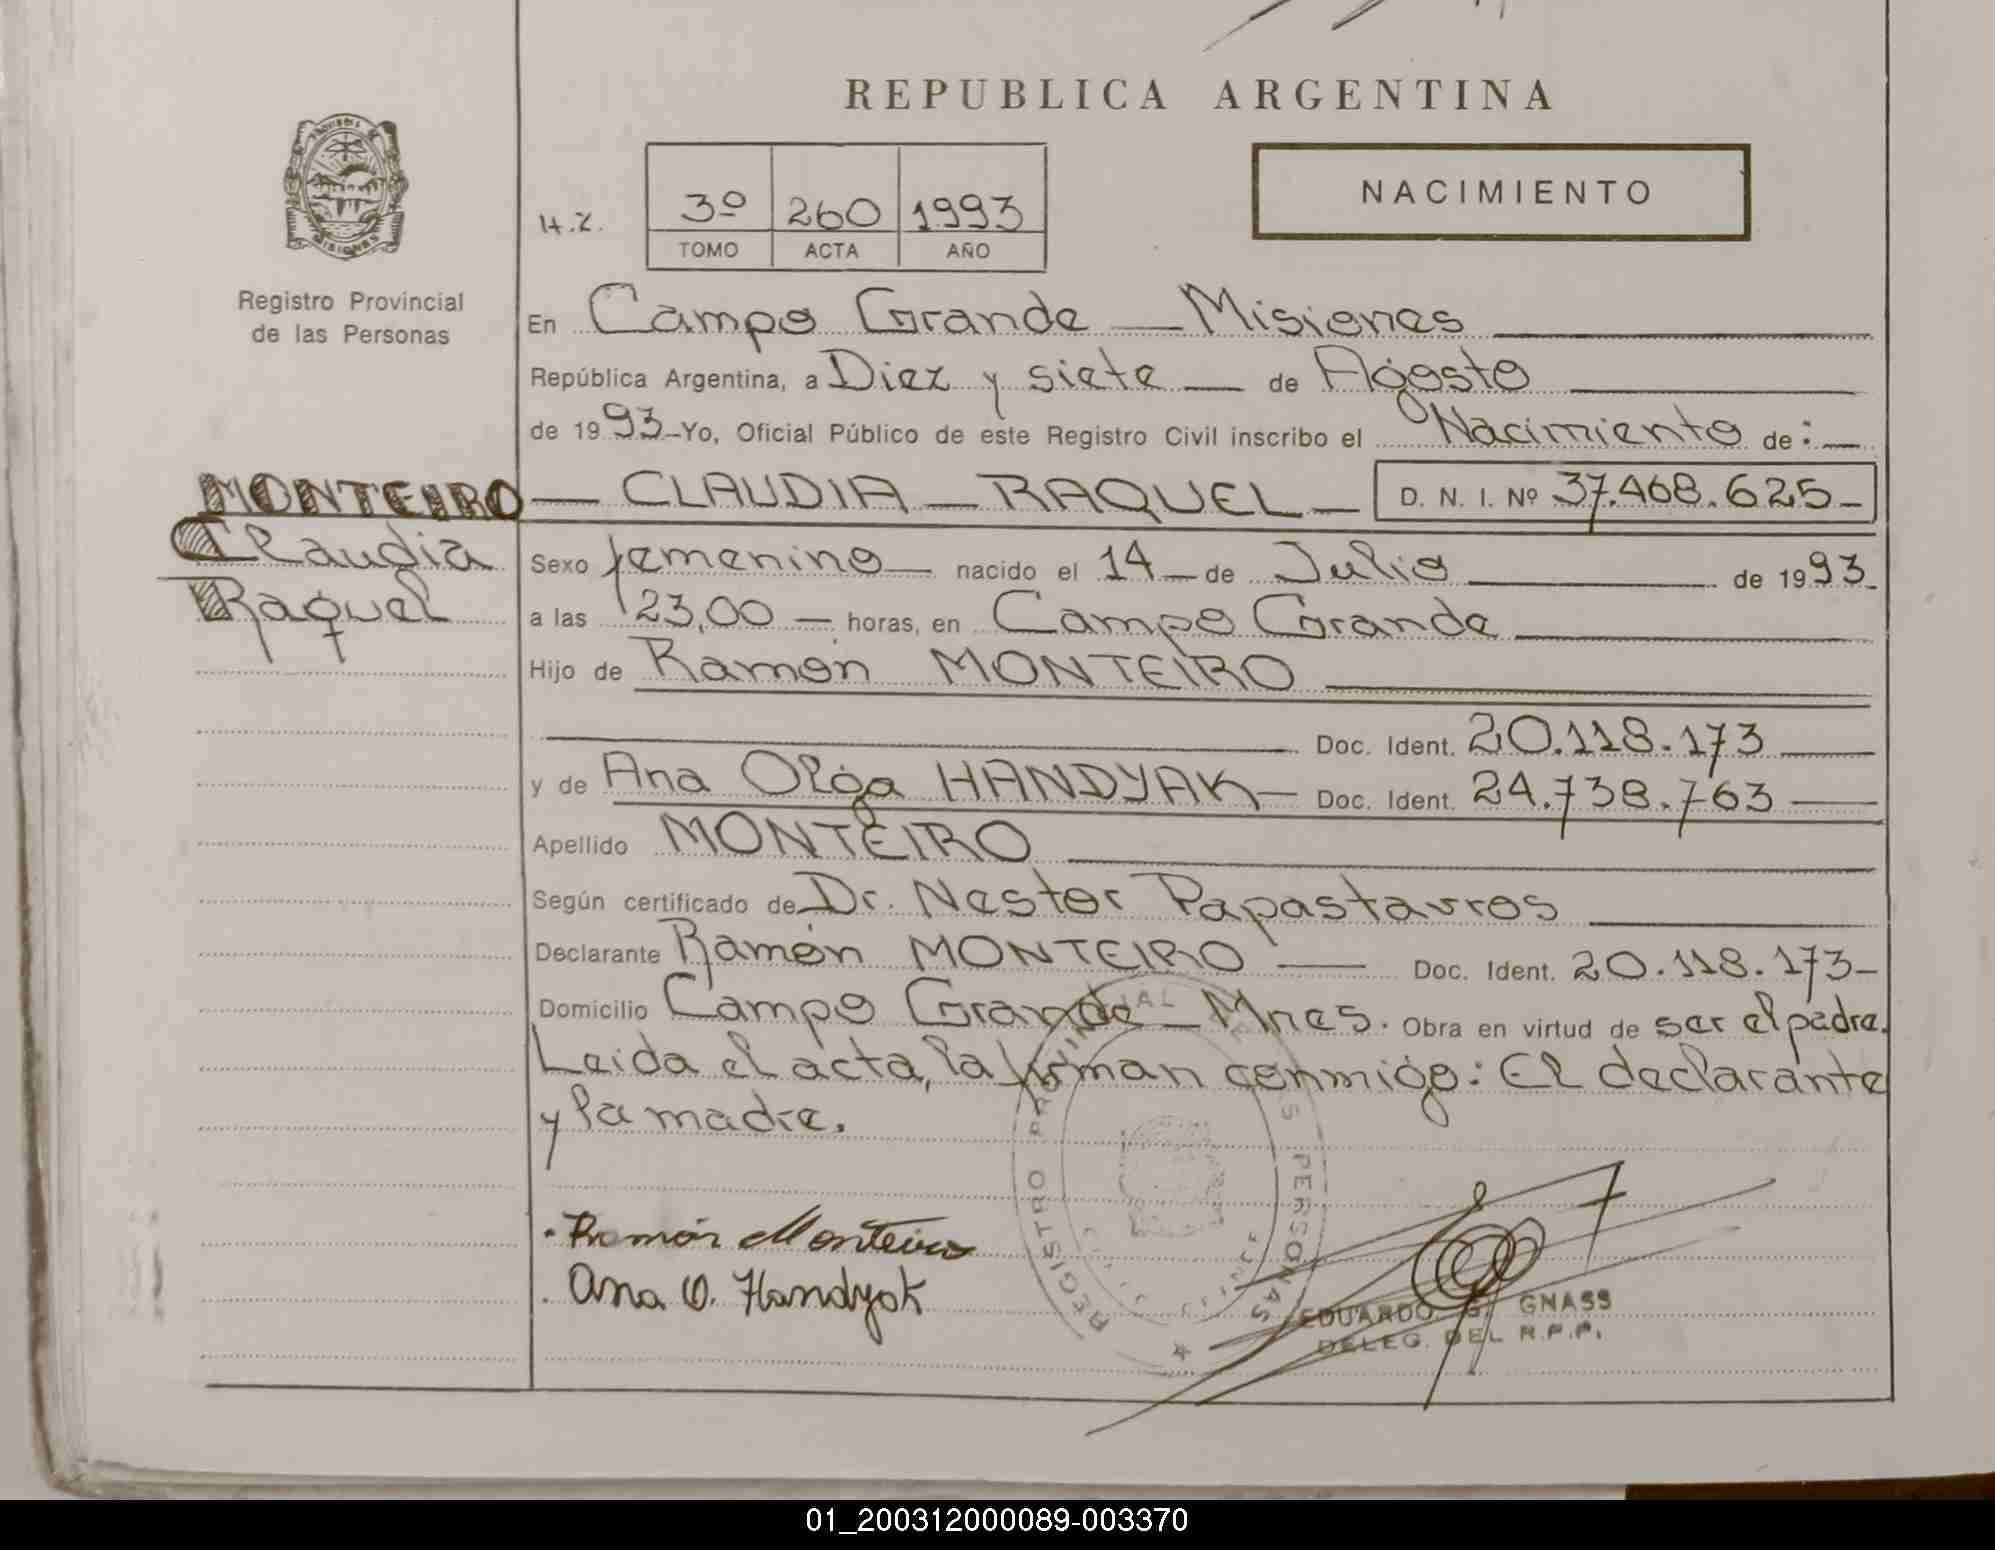 REPUBLICA ARGENTINA
PROVINCIA DE
MISIONES
Registro Provincial
de las Personas
H.Z.
3º 260 1993
TOMO ACTA AÑO
NACIMIENTO
En Campo Grande — Misiones
República Argentina, a Diez y siete — de Agosto
de 1993 - Yo, Oficial Público de este Registro Civil inscribo el Nacimiento de : —
MONTEIRO — CLAUDIA — RAQUEL — D. N. I. Nº 37.468.625 -
Claudia
Raquel
Sexo femenino — nacido el 14 — de Julio de 1993 -
a las 23,00 — horas, en Campo Grande
Hijo de Ramón MONTEIRO
Doc. Ident. 20.118.173
y de Ana Olga HANDYAK — Doc. Ident. 24.738.763
Apellido MONTEIRO
Según certificado de Dr. Nestor Papastavros
Declarante Ramón MONTEIRO — Doc. Ident. 20.118.173 -
Domicilio Campo Grande — Mnes. Obra en virtud de ser el padre.
Leida el acta, la firman conmigo: El declarante
y la madre.
REGISTRO PROVINCIAL DE LAS PERSONAS
Ramón Monteiro
Ana O. Handyak
EDUARDO G. GNASS
DELEG. DEL R.P.P.
01_200312000089-003370